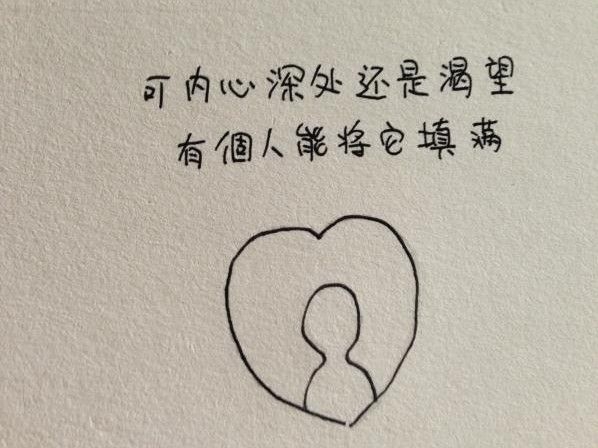 可内心深处还是渴望
有個人能将它填满